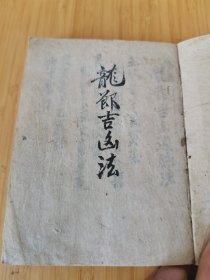 龍節吉凶法